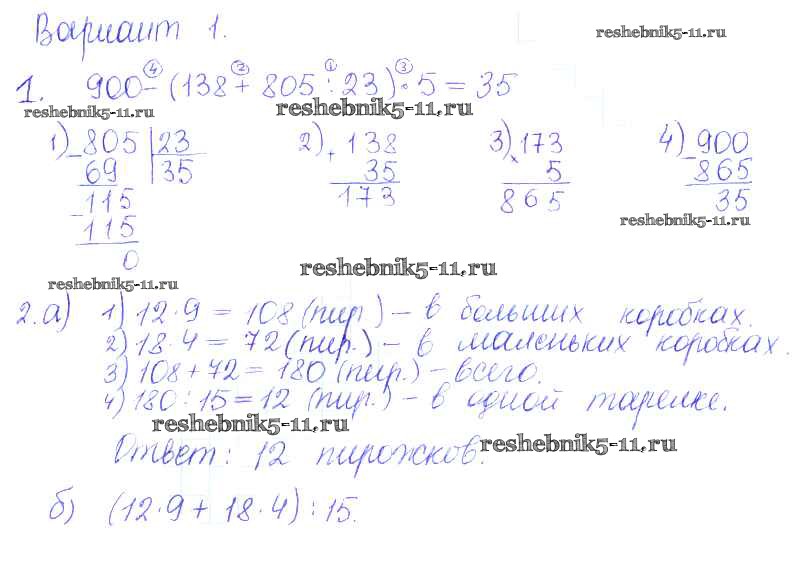 Вариант 1.
reshebnik5-11.ru
④ ② ① ③
1. 900-(138+805:23)·5=35
reshebnik5-11.ru
reshebnik5-11.ru
1) 805 23
- 69 35
115
- 115
0
2) 138
+ 35
173
3) 173
× 5
865
4) 900
- 865
35
reshebnik5-11.ru
reshebnik5-11.ru
reshebnik5-11.ru
2. а) 1) 12·9=108 (пир) – в больших коробках.
2) 18·4=72 (пир.) – в маленьких коробках.
3) 108+72=180 (пир.) – всего.
4) 180:15=12 (пир.) – в одной тарелке.
reshebnik5-11.ru
Ответ: 12 пирожков.
reshebnik5-11.ru
б) (12·9+18·4):15.